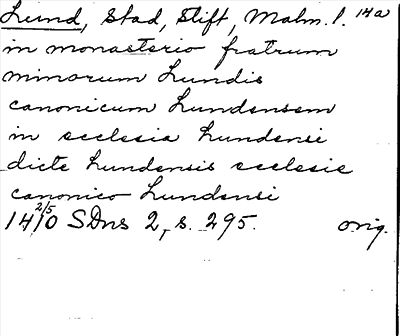 Lund, Stad, Stift, Malm. l. 14a
in monasterio fratrum
minorum Lundis
canonicum Lundensem
in ecclesia Lundensi
dicte Lundensis ecclesie
canonico Lundensi
14 2/5 10 SDns 2, s. 295. orig.